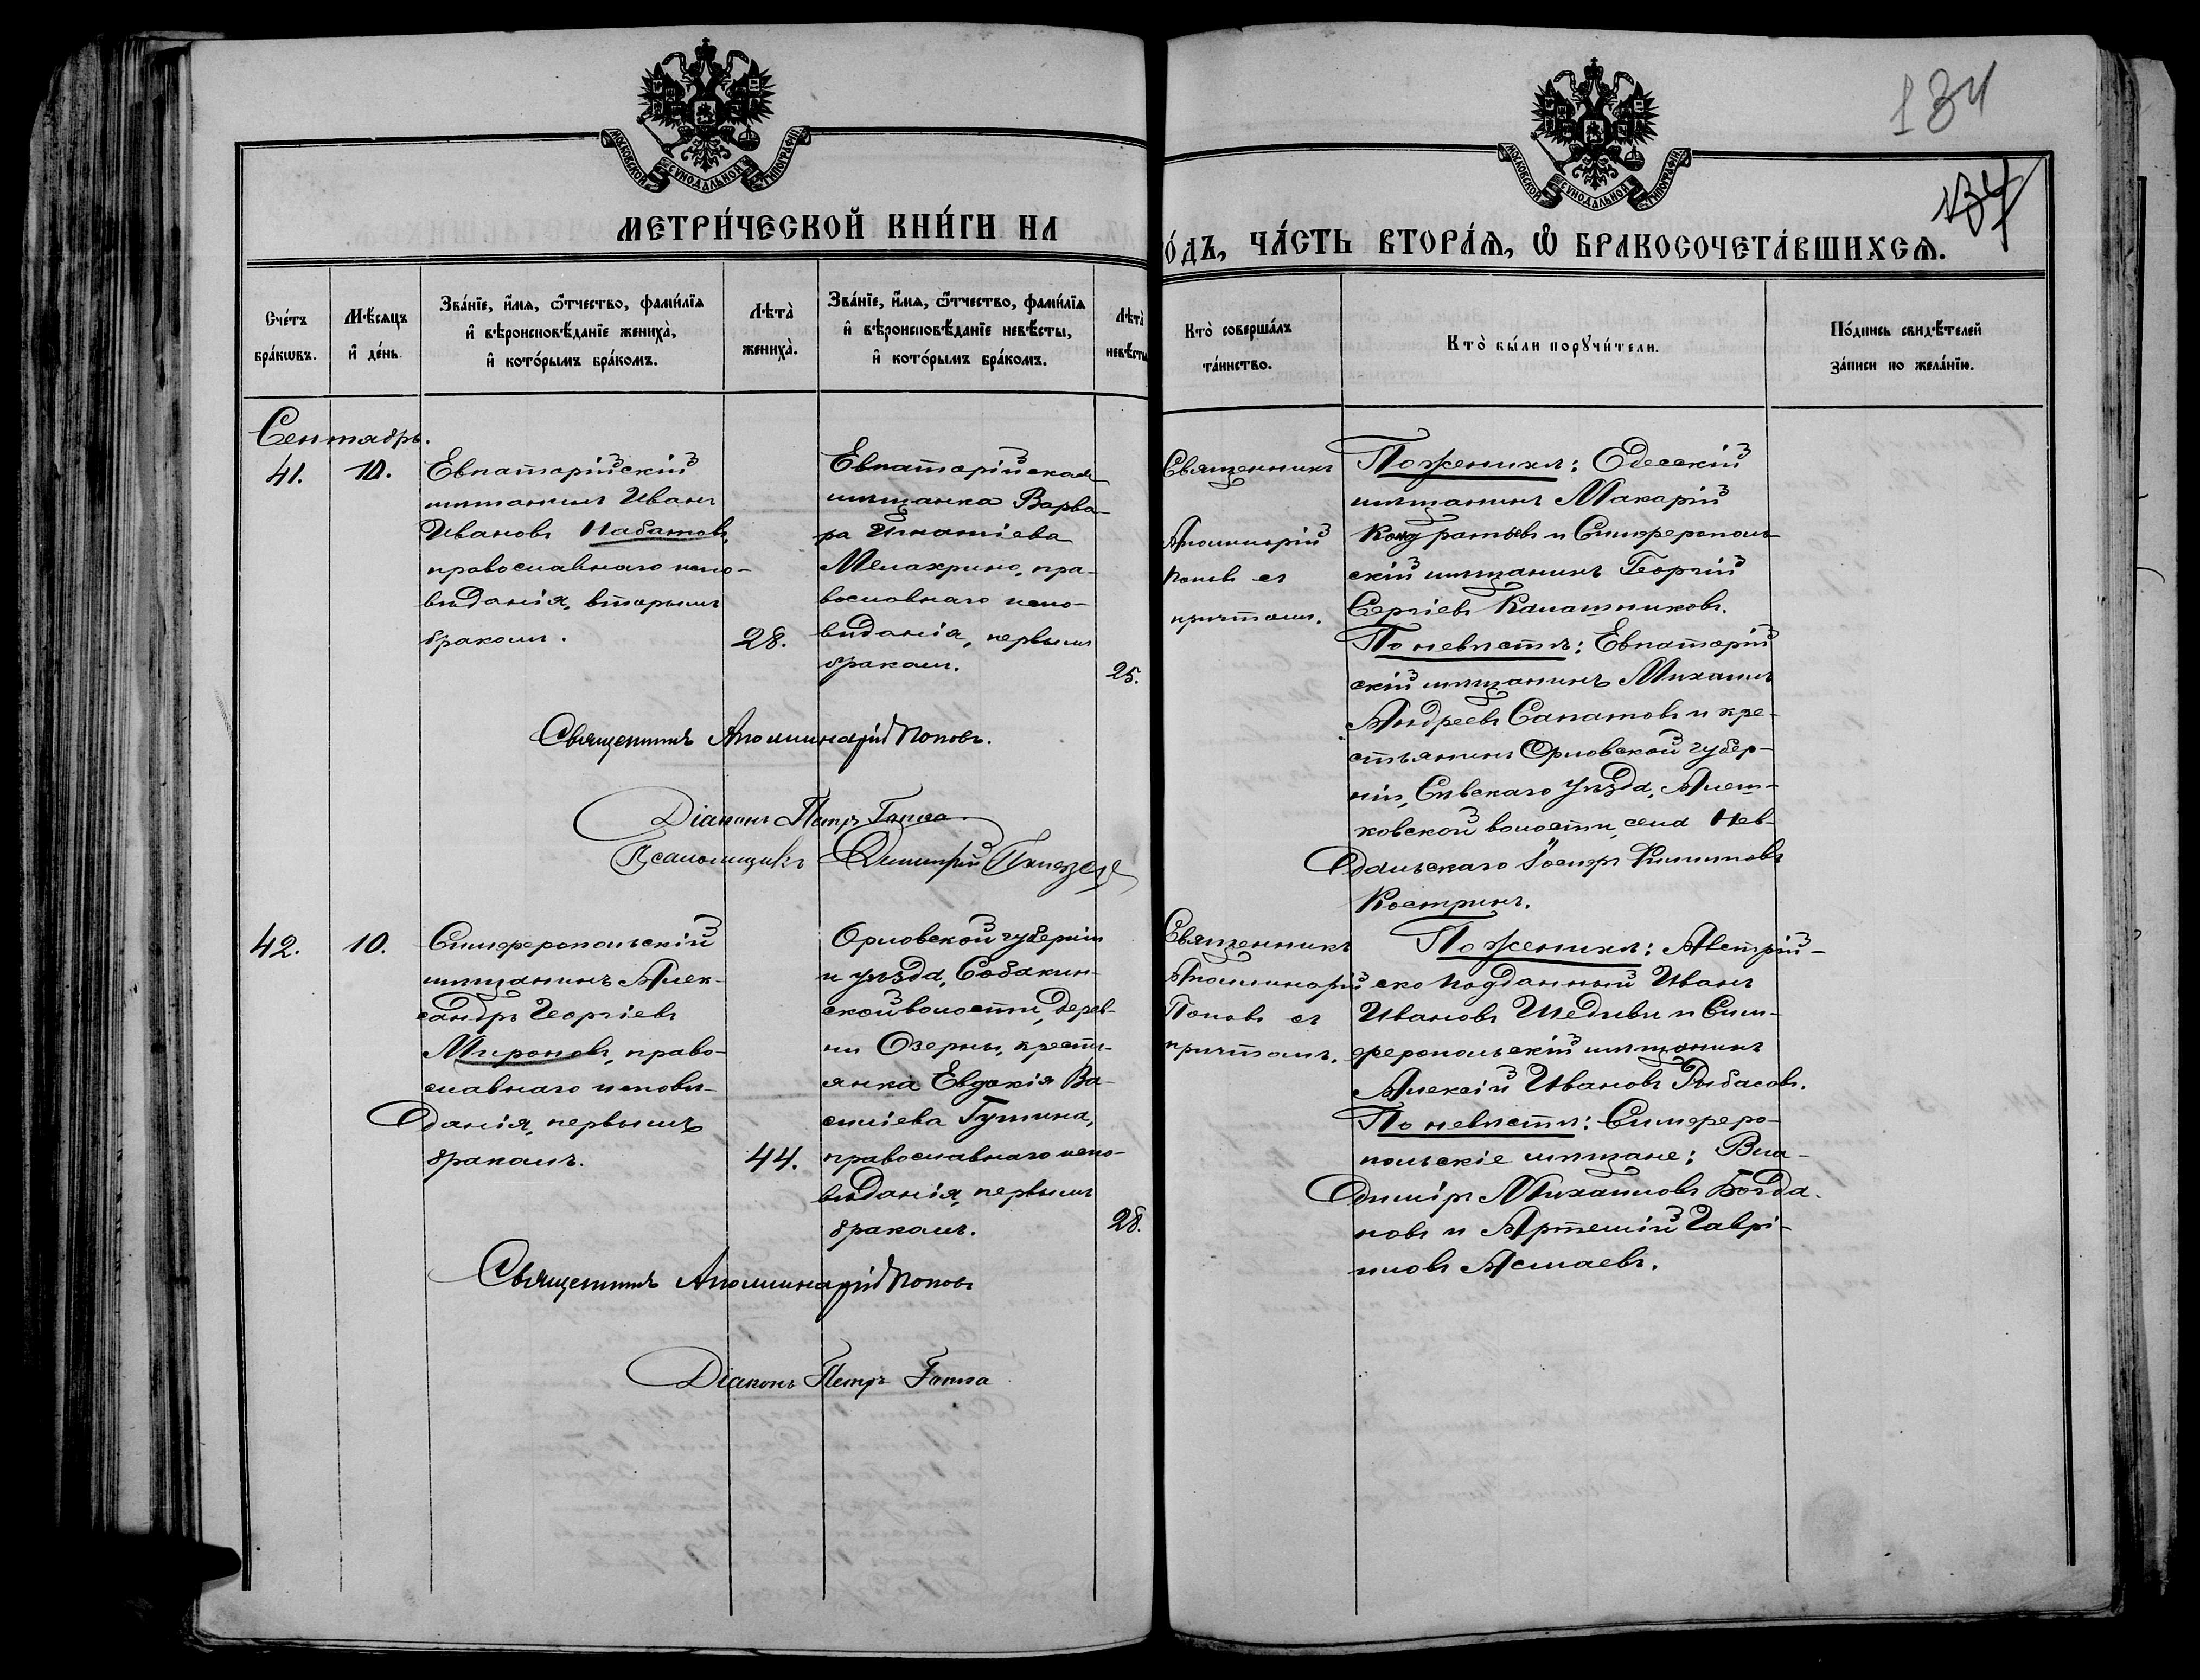 134
134
МОСКОВСКОЙ СѴНОДАЛЬНОЙ ТИПОГРАФІИ
МОСКОВСКОЙ СѴНОДАЛЬНОЙ ТИПОГРАФІИ
МЕТРИ́ЧЕСКОЙ КНИ́ГИ НА
О́ДЪ, ЧА́СТЬ ВТОРА́Ѧ, Ѡ҆ БРАКОСОЧЕТА́ВШИХСѦ.
Сче́тъ
бра́кѡвъ.
Мѣ́сѧцъ
и҆ де́нь.
Зва́нїе, и҆́мѧ, ѻ҆́тчество, фами́лїѧ
и҆ вѣроисповѣ́данїе жениха̀,
и҆ кото́рымъ бра́комъ.
Лѣта̀
жениха̀.
Зва́нїе, и҆́мѧ, ѻ҆́тчество, фами́лїѧ
и҆ вѣроисповѣ́данїе невѣ́сты,
и҆ кото́рымъ бра́комъ.
Лѣта̀
невѣ́сты
Кто̀ соверша́лъ
та́инство.
Кто̀ бы́ли порꙋчи́тели.
По́дпись свидѣ́телей
за́писи по жела́нїю.
Сентябрь.
41.
10.
Евпаторійскій
мѣщанинъ Иванъ
Ивановъ Набатовъ,
православнаго испо-
вѣданія, вторымъ
бракомъ.
28.
Евпаторійская
мѣщанка Варва-
ра Игнатіева
Мелахрино, пра-
вославнаго испо-
вѣданія, первымъ
бракомъ.
25.
Священникъ
Аполлинарій
Поповъ съ
причтомъ.
По женихѣ: Одесскій
мѣщанинъ Макарій
Кондратьевъ и Симферополь-
скій мѣщанинъ Георгій
Сергіевъ Калашниковъ.
По невѣстѣ: Евпаторій
скій мѣщанинъ Михаилъ
Андреевъ Сапатовъ и кре-
стьянинъ Орловской губер-
ніи, Сѣвскаго уѣзда, Алеш-
ковской волости, села Нев-
дольскаго Іосифъ Филиповъ
Костринъ.
Священникъ Аполлинарій Поповъ.
Діаконъ Петръ Гапла
Псаломщикъ Димитрій
42.
10.
Симферопольскій
мѣщанинъ Алек-
сандръ Георгіевъ
Мироновъ, право-
славнаго исповѣ-
данія, первымъ
бракомъ.
44.
Орловской губерніи
и уѣзда, Собакин-
ской волости, дерев-
ни Озерны, кресть-
янка Евдокія Ва-
силіева Гутина,
православнаго испо-
вѣданія, первымъ
бракомъ.
28.
Священникъ
Аполлинарій
Поповъ съ
причтомъ.
По женихѣ: Австрій-
ско подданный Иванъ
Ивановъ Шедивы и Сим-
феропольскій мѣщанинъ
Алексій Ивановъ Рыбасовъ.
По невѣстѣ: Симферо-
польскіе мѣщане: Вла-
диміръ Михаиловъ Богда-
новъ и Артемій Гаврі-
иловъ Асмаевъ.
Священникъ Аполлинарій Поповъ
Діаконъ Петръ Гапла